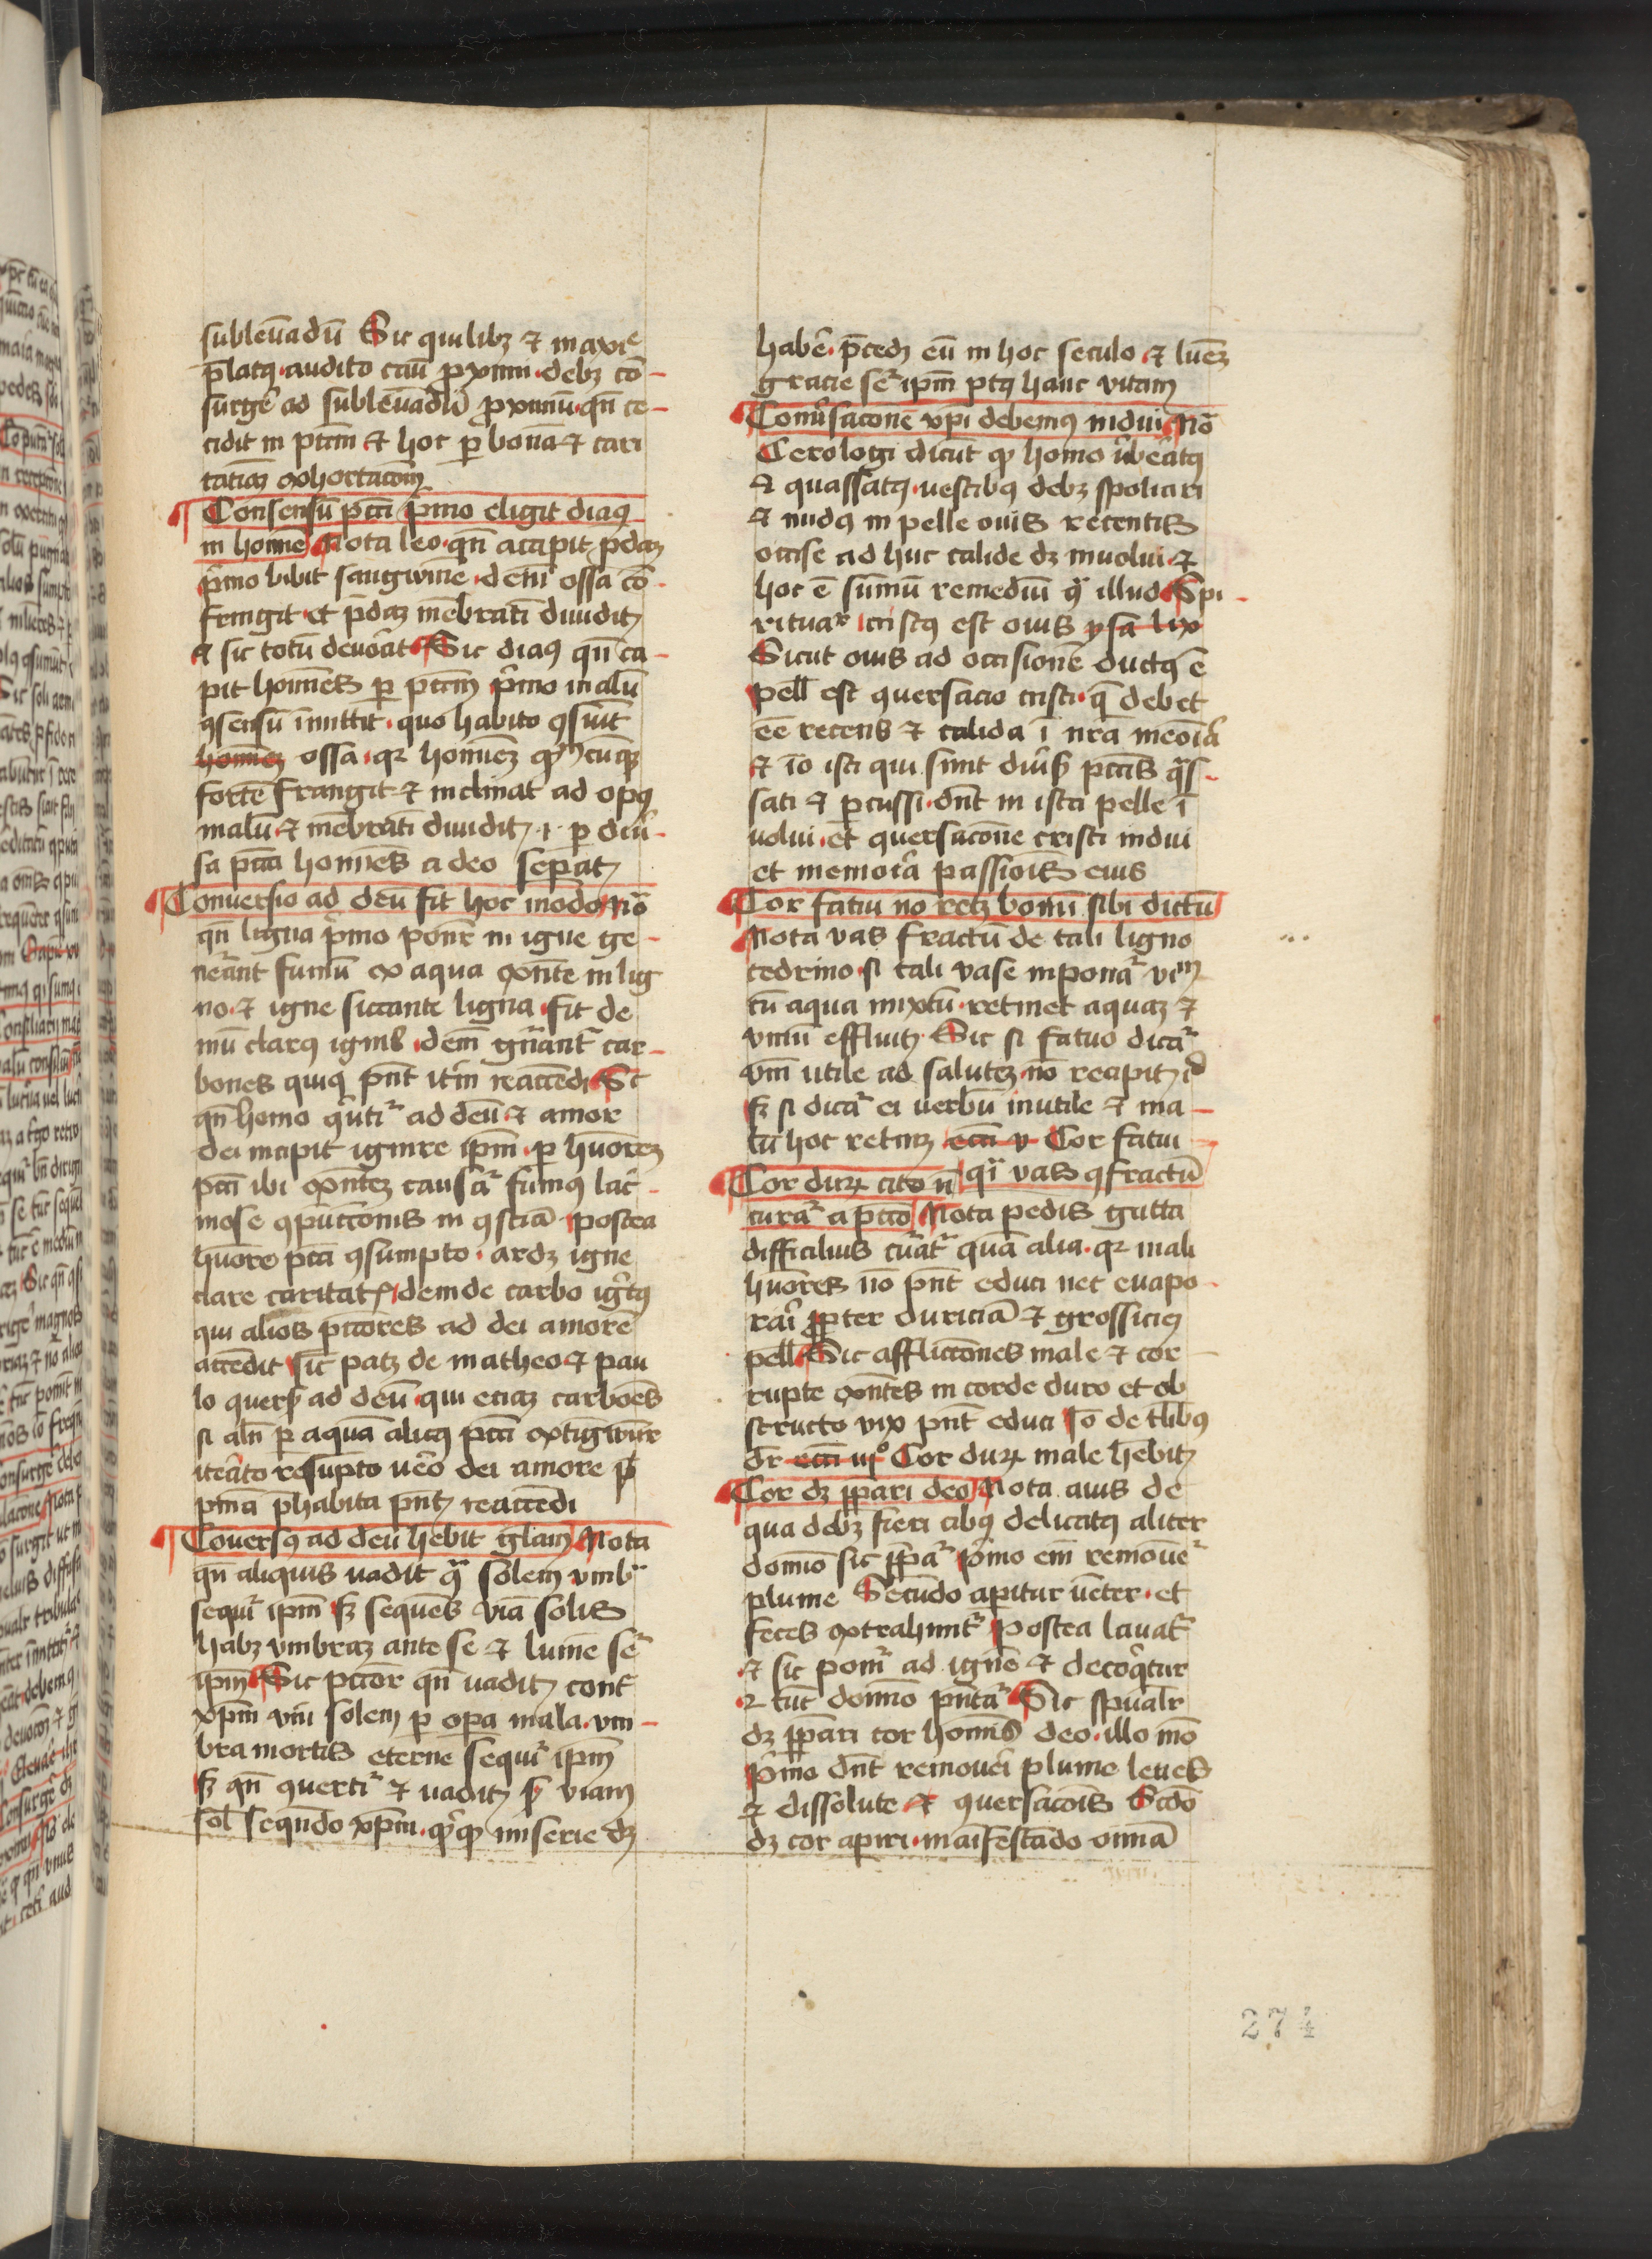 subleuādū Sic quilibꝫ ⁊ maxīe
p̄latꝰ audito casū ꝓximi debꝫ cō-
surgē ad subleuādū ꝓximū qn̄ ce-
cidit in pctm̄ ⁊ hoc ꝑ bonā ⁊ cari
tatiuā exhortacōꝫ
Consensū pcti p̄mo eligit diaꝰ
in homīe Nota leo qn̄ accipit p̄daꝫ
p̄mo bibit sangwinē deīn ossa cō-
frangit et p̄daꝫ mēbratī diuidit
⁊ sic totū deuorat Sic diaꝰ qn̄ ca-
pit homīes ꝑ pctm̄ p̄mo malū
ꝯsensū īmittit quo habito ꝯsūit
hominē ossa qꝛ homineꝫ cūqꝫ
fortē frangit ⁊ inclinat ad opꝰ
malū ⁊ mēbratī diuidit .i. ꝑ diū-
sa pctā homīes a deo sepat
Conuersio ad deū fit hoc modo Nō
qn̄ ligna p̄mo ponūr in igne ge-
nerant fumū ex aqua exn̄te in lig
no ⁊ igne siccante ligna fit de
mū clarꝰ ignis dem̄ gn̄ant̄ car-
bones quiqꝫ pn̄t itm̄ reaccēdi Sic
qn̄ homo ꝯuti͛ ad deū ⁊ amor
dei incipit ignire ipm̄ ꝑ hūoreꝫ
pcti ibi exn̄teꝫ causa͛ fumꝰ lac͛-
mose ꝯpūccionis in ꝯsciā postea
hūore pcti ꝯsumpto ardꝫ igne
clare caritatꝭ deinde carbo ignitꝰ
qui alios pctōres ad dei amorē
accēdit sic patꝫ de matheo ⁊ pau
lo ꝯuersꝭ ad deū qui eciaꝫ carbōes
si aln̄ ꝑ aquā alicꝰ pcti extigwūr
iterato resūpto uero dei amore
p̄habita pn̄t reaccēdi
Cōuersꝰ ad deū hēbit gl̄am Nota
qn̄ aliquis uadit ꝯ͛ solem vmb͛
sequi͛ ipm̄ sꝫ sequēs viā solis
habꝫ vmbraꝫ ante se ⁊ lumē se͛
ipm̄ Sic pctōr qn̄ uadit cont͛
xp̄m uin̄ solem ꝑ opa mala vm-
bra mortis eterne sequi͛ ipm̄
sꝫ qn̄ ꝯuerti͛ ⁊ uadit viam
sol̄ sequēdo xp̄m miserie dꝫ
habē p̄cedꝫ eū in hoc seculo ⁊ lumē
gracie se͛ ipm̄ ptꝰ hanc vitam
Conūsacōne xp̄i debemꝰ indui Nō
Cerologi dicūt qꝫ homo ūberatꝰ
⁊ quassatꝰ uestibꝰ debꝫ spoliari
⁊ nudꝰ in pelle ouis recentis
occise ad huc calide dꝫ inuolui ⁊
hoc ē sūmū remediū ꝯ͛ illud Spi-
ritua͛ cristꝰ est ouis ysa liij
Sicut ouis ad occisionē ductꝰ ē
pell̄ est ꝯuersacio cristi q̄ debet
eē recens ⁊ calida ī nr̄a meōia
⁊ iō isti qui sunt diūsꝭ pctīs q͛s-
sati ⁊ ꝑcussi dn̄t in ista pelle ī
uolui et ꝯuersacōne cristi indui
et memoria passiois eius
Cor fatui nō retꝫ bonū sibi dictū
Nota vas fractū de tali ligno
cedrino si tali vase inpona͛ vin̄
cū aqua mixtū retinet aquaꝫ ⁊
vinū effluit Sic si fatuo dica͛
vm̄ utile ad saluteꝫ nō recipit id
sꝫ si dica͛ ei uerbū inutile ⁊ ma-
lū hoc retinꝫ Cor fatui
q͛i vas ꝯfractū
Cor duꝝ cito n̄
cura͛ a pctō Nota pedis gutta
difficilius curat͛ quā alia qꝛ mali
hūores nō pn̄t educi nec euapo-
rari ꝓpter duriciā ⁊ grossiciē
pell̄ Sic afflicciones male ⁊ cor-
rupte exn̄tes in corde duro et ob
structo vix pn̄t educi Iō de tlibꝰ
dr̄ Cor duꝝ male hēbit
Cor dꝫ p̄pari deo Nota auis de
qua debꝫ fieri cibꝰ delicatꝰ aliter
domīo sic p̄pa͛ p̄mo em̄ remoue͛
plume Secūdo aperitur uēter et
feces extrahunt͛ Postea lauat͛
⁊ sic poni͛ ad ignē ⁊ decoq̄tur
⁊ tūc domīo pn̄ta͛ Sic spūalr̄
dꝫ p̄pari cor hominis deo illo mō
p̄mo dn̄t remoueri plume leues
⁊ dissolute ⁊ ꝯuersacōis Scdō
dꝫ cor apiri maīfestādo omnīa
274